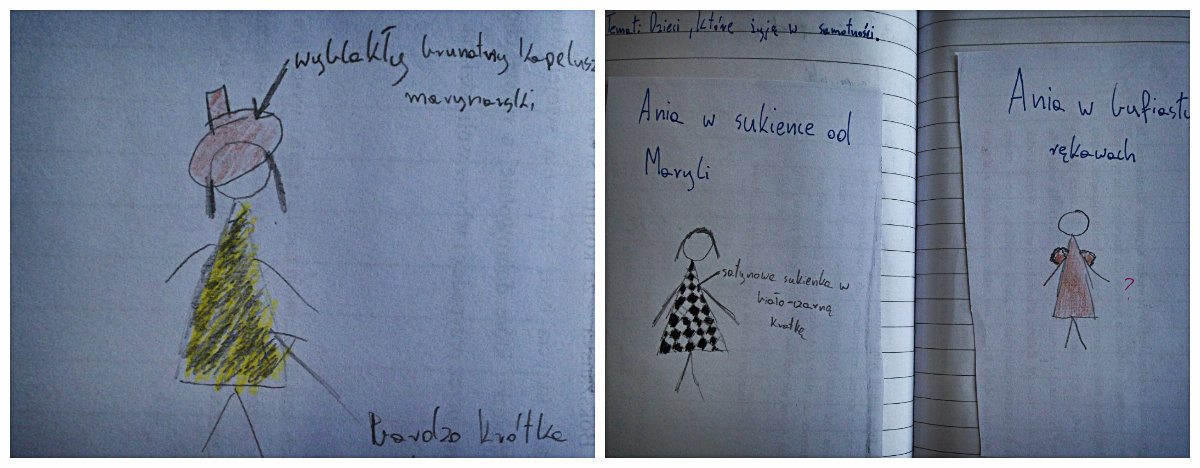 wyblakły brunatny kapelusz
marynarski
Bardzo krótka
Temat: Dzieci, które żyją w samotności.
Ania w sukience od
Maryli
satynowa sukienka w
biało-czarną
kratkę
Ania w bufiasty
rękawach
?